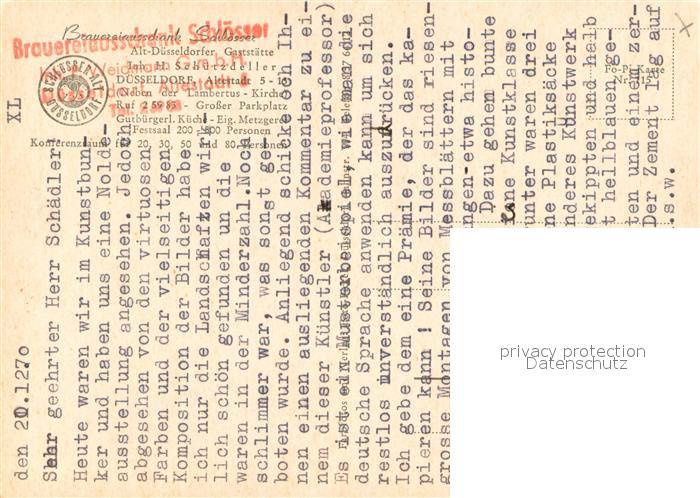 Brauereiausschank Schlösser
Alt-Düsseldorfer Gaststätte
DÜSSELDORF, Altstadt 5 -
(Neben der Lambertus-Kirche)
Ruf 25983 - Großer Parkplatz
Gutbürgerl. Küche - Eig. Metzgerei
Festsaal 200 - 600 Personen
Konferenzräume für 20, 30, 50 und 80 Personen
Brauereiausschank Schlösser
SCHLÖSSER ALT
DÜSSELDORF
Fo-Pi-Karte
Nr.
den 20.1270 XL
Sehr geehrter Herr Schädler
Heute waren wir im Kunstbun-
ker und haben uns eine Nolde-
ausstellung angesehen. Jedoch
abgesehen von den virtuosen
Farben und der vielseitigen
Komposition der Bilder habe
ich nur die Landschafzen wirk-
lich schön gefunden un die
waren in der Minderzahl. Noch
schlimmer war, was sonst ge-
boten wurde. Anliegend schicke ich Ih-
nen einen ausliegenden Kommentar zu ei-
nem dieser Künstler (Akademieprofessor)
Es ist ein Musterbeispiel, wie man die
deutsche Sprache anwenden kann um sich
restlos unverständlich auszudrücken.
Ich gebe dem eine Prämie, der das ka-
pieren kann ! Seine Bilder sind riesen-
grosse Montagen von Messblättern mit
ngen-etwa histo-
Dazu gehen bunte
ine Kunstklasse
unter waren drei
ne Plastiksäcke
nderes Kunstwerk
ekippten und halb
t hellblauen ge-
ten und seinem
Der Zement lag auf
.s.w.
privacy protection
Datenschutz